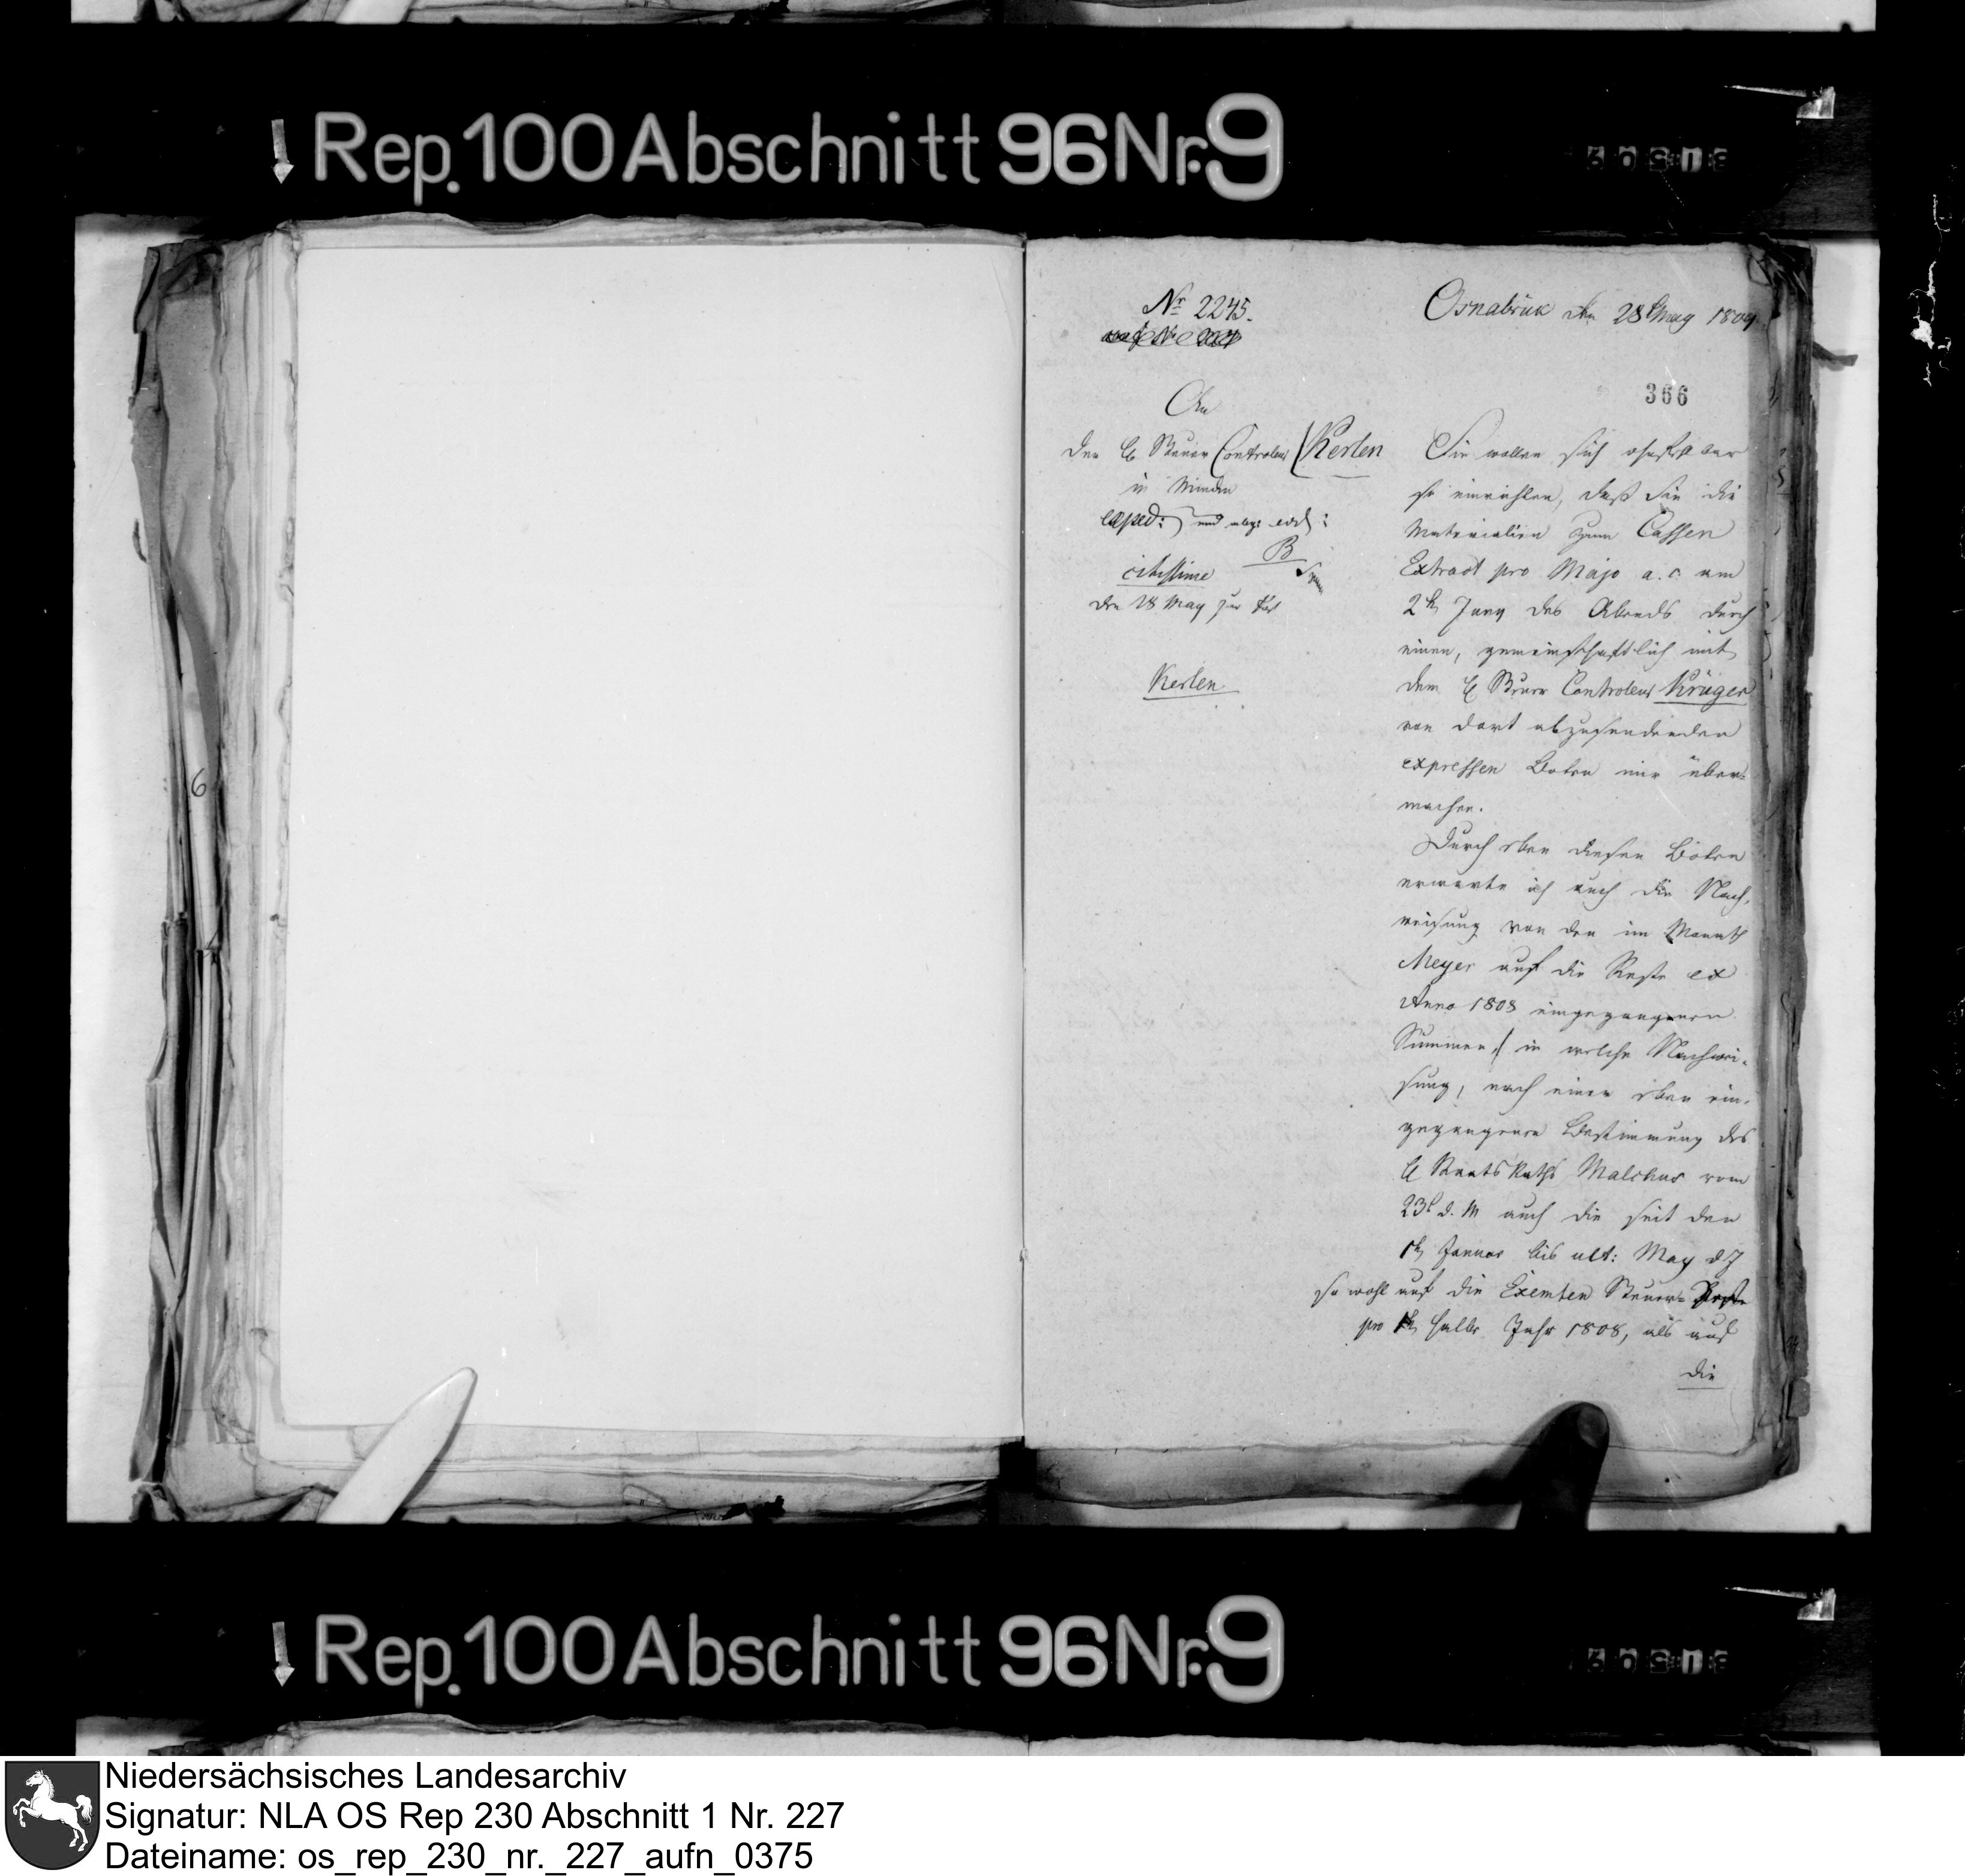 Rep. 100 Abschnitt 96 Nr. 9
Nr 2245.
Osnabrück den 28t May 1809.
366
An
den H Steuer Controleur Kerlen
in Minden
exped:
citissime
den 28 May zur Post
Kerlen
Sie wollen sich ohnfehlbar
so einrichten, daß Sie die
Materialien zum Cassen
Extract pro Majo a. c. am
2ten Juny des Abends durch
einen, gemeinschaftlich mit
dem H Steuer Controleur Krüger
von dort abzusendenden
expressen Boten mir über-
machen.
Durch eben diesen Boten
erwarte ich auch die Nach-
weisung von den im Monath
Meyer auf die Reste ex
Anno 1808 eingegangenen
Summen, in welche Nachwei-
sung, nach einer eben ein-
gegangenen Bestimmung des
H Staats Raths Malchus vom
23t d. M auch die seit den
1ten Januar bis ult: May d J
so wohl auf die Exemten Steuer- Reste
pro 1te halbe Jahr 1808, als auf
die
6
Rep. 100 Abschnitt 96 Nr. 9
Niedersächsisches Landesarchiv
Signatur: NLA OS Rep 230 Abschnitt 1 Nr. 227
Dateiname: os_rep_230_nr._227_aufn_0375